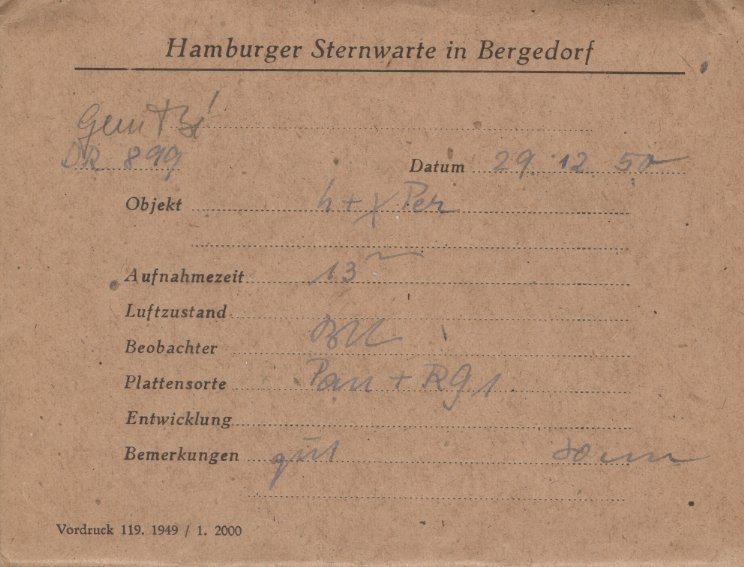 Hamburger Sternwarte in Bergedorf
DR 899
Datum 29. 12. 50
Objekt h + χ Per
Aufnahmezeit 13 m
Luftzustand
Beobachter
Plattensorte Pan + RG1
Entwicklung
Bemerkungen gut
Vordruck 119. 1949 / 1. 2000